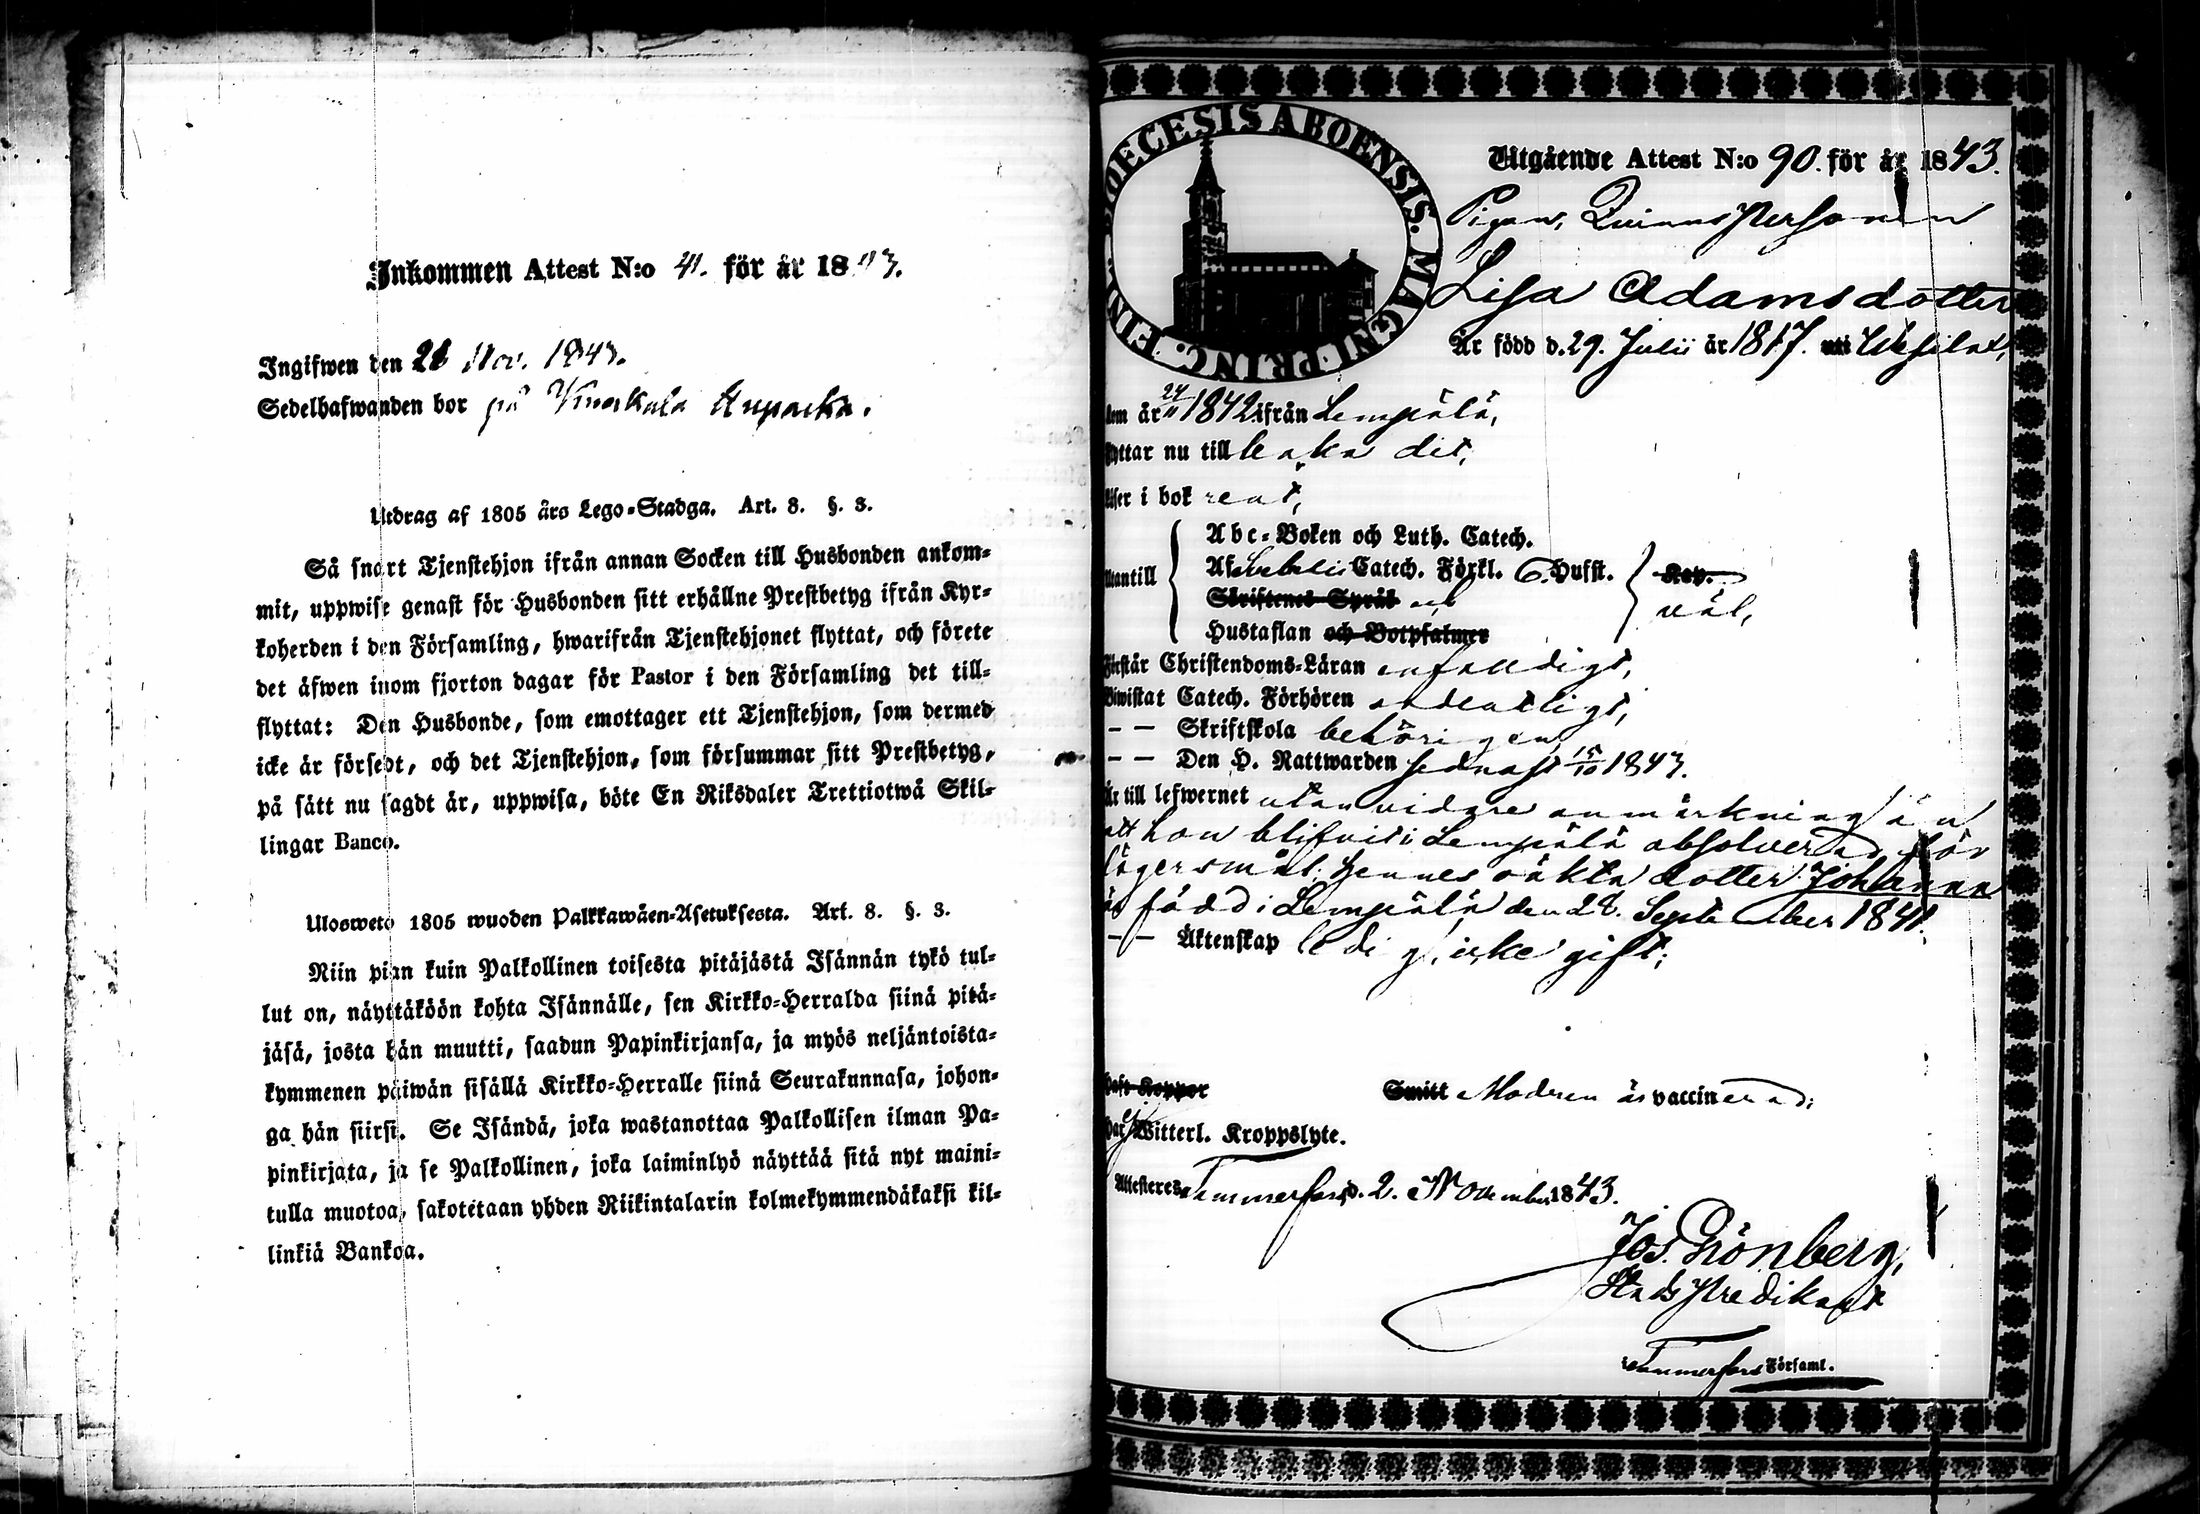 Inkommen Attest N:o 41. för år 1843.
Ingifwen den 28 Nov. 1843.
Sedelhafwanden bor på
Utdrag af 1805 års Lego-Stadga. Art. 8. §. 3.
Så snart Tjenstehjon ifrån annan Socken till Husbonden ankom-
mit, uppwise genast för Husbonden sitt erhållne Prestbetyg ifrån Kyr-
koherden i den Församling, hwarifrån Tjenstehjonet flyttat, och förete
det äfwen inom fjorton dagar för Pastor i den Församling det till-
flyttat: Den Husbonde, som emottager ett Tjenstehjon, som dermed
icke är försedt, och det Tjenstehjon, som försummar sitt Prestbetyg,
på sätt nu sagdt är, uppwisa, böte En Riksdaler Trettiotwå Skil-
lingar Banco.
Ulosweto 1805 wuoden Palkkawäen-Asetuksesta. Art. 8. §. 3.
Niin pian kuin Palkollinen toisesta pitäjästä Isännän tykö tul-
lut on, näyttäköön kohta Isännälle, sen Kirkko-Herralda siinä pitä-
jäsä, josta hän muutti, saadun Papinkirjansa, ja myös neljäntoista-
kymmenen päiwän sisällä Kirkko-Herralle siinä Seurakunnasa, johon-
ga hän siirsi. Se Isändä, joka wastanottaa Palkollisen ilman Pa-
pinkirjata, ja se Palkollinen, joka laiminlyö näyttää sitä nyt maini-
tulla muotoa, sakotetaan yhden Riikintalarin kolmekymmendäkaksi kil-
linkiä Bankoa.
DIOECESIS ABOENSIS. MAGNI PRINC. FIN
Utgående Attest N:o 90. för år 1843.
Pigan, Qvinnspersonen
Lisa Adamsdotter
Är född d. 29. Julii år 1817. uti
kom år 24/11 1842. ifrån Lempälä,
flyttar nu tillbaka dit,
Läser i bok rent,
Utantill
Abc-Boken och Luth. Catech.
Af Svebelii Catech. Förkl. 6. Hufst.
Skriftenes Språk och
Hustaflan och Botpsalmer
väl,
Förstår Christendoms-Läran enfaldigt,
Biwistat Catech. Förhören ordentligt,
– – Skriftskola behörigen,
– – Den H. Nattwarden sednast 15/10 1843.
Är till lefwernet utan vidare anmärkning än
att hon blifvit i Lempälä absolverad för
lägersmål; hennes oäkta dotter Johanna
är född i Lempälä den 28. September 1841.
– – Äktenskap ledig, icke gift;
Haft Koppor Smitt Modren är vaccinerad;
Har ej Witterl. Kroppslyte.
Attesteres Tammerfors, d. 2. November 1843.
Jos. Grönberg,
Stadspredikant
i Tammerfors Församl.